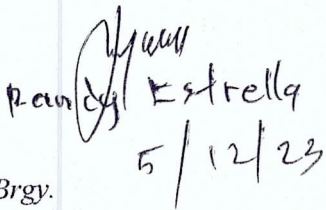 Randy Estrella
5/12/23
Brgy.